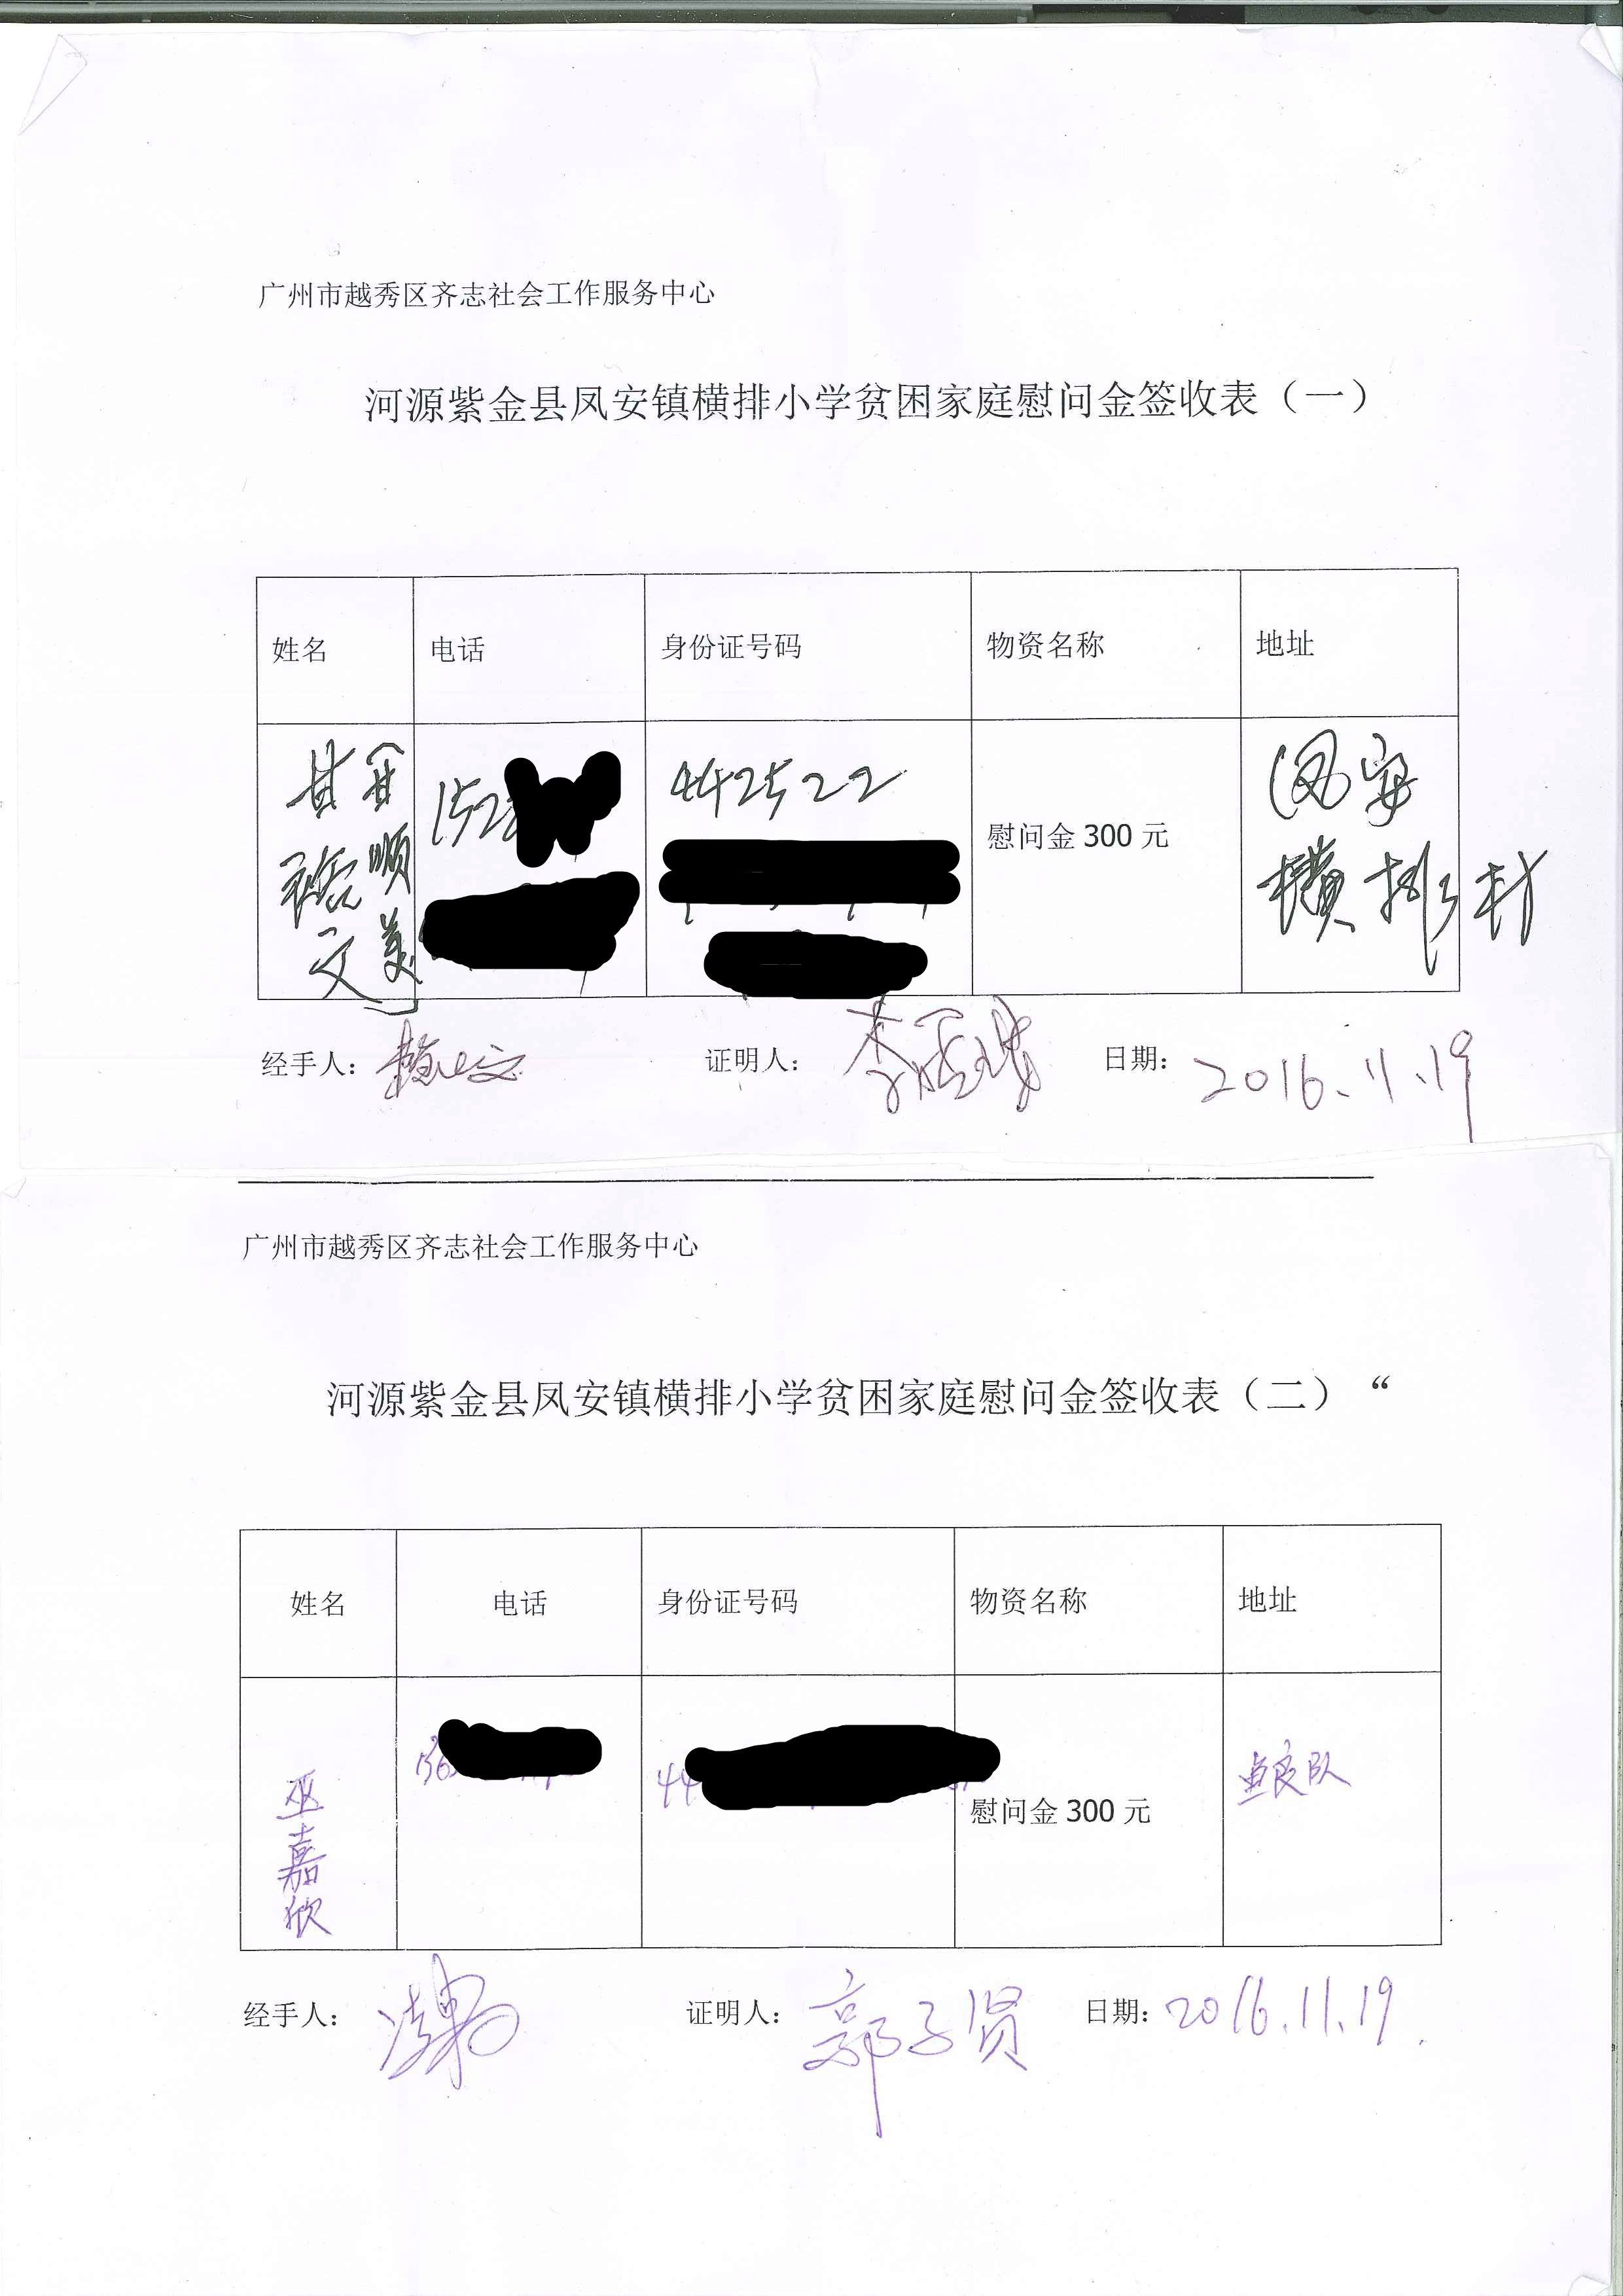 广州市越秀区齐志社会工作服务中心
河源紫金县凤安镇横排小学贫困家庭慰问金签收表（一）
姓名 电话 身份证号码 物资名称 地址
甘
顺
文 美
152
442522
慰问金 300 元
凤安
横排村
经手人： 证明人：李 日期：2016.11.19
广州市越秀区齐志社会工作服务中心
河源紫金县凤安镇横排小学贫困家庭慰问金签收表（二）“
姓名 电话 身份证号码 物资名称 地址
巫嘉欣 136 44 慰问金 300 元 良队
经手人： 证明人：郭子贤 日期：2016.11.19.